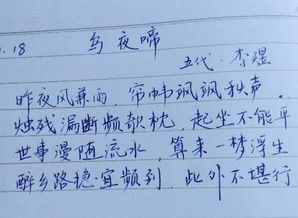 1.18 乌夜啼
五代·李煜
昨夜风兼雨，帘帏飒飒秋声．
烛残漏断频欹枕，起坐不能平
世事漫随流水，算来一梦浮生
醉乡路稳宜频到，此外不堪行